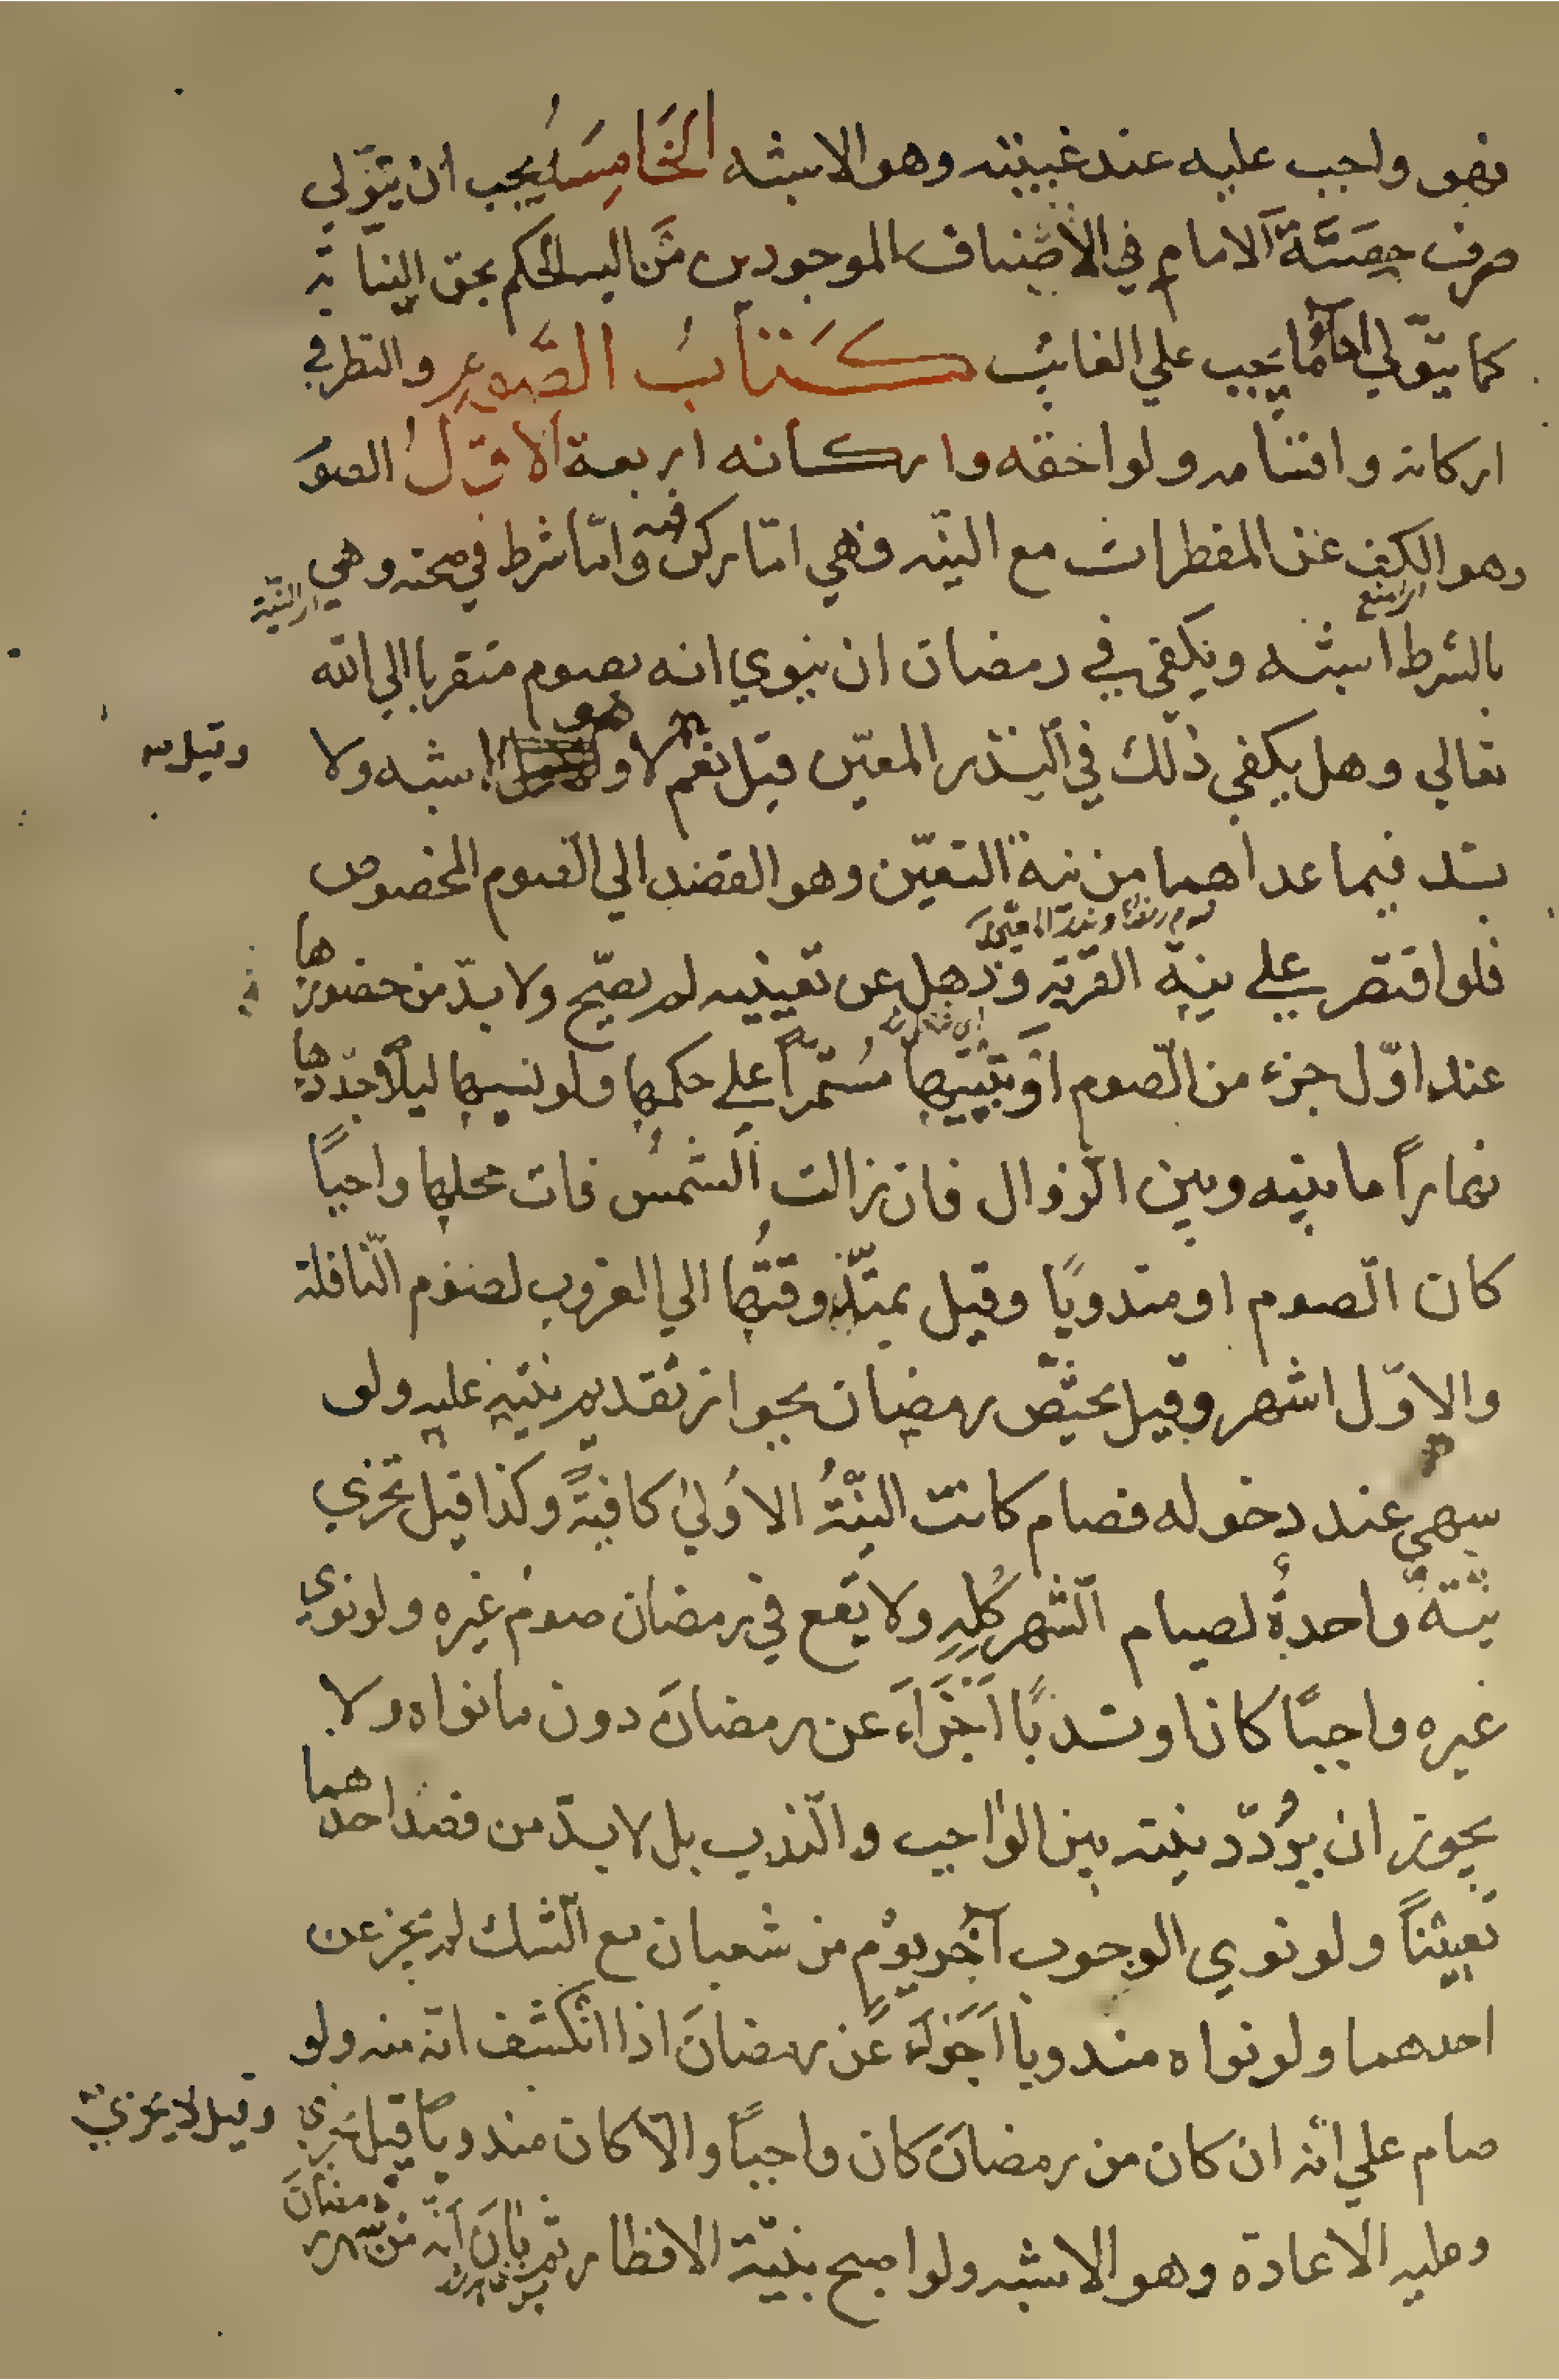 فهو واجب عليه عند غيبته وهو الاشبه الخَامِسَةُ يجب ان يتوّلي
صرف حِصَّة الامام في الأصْناف الموجودين مَن اليه الحكم بحق النيابة
كما يتوّلي اداءَ ما يَجب علي الغائب كتَابُ الصَّومِ والنظر في
اركانه واقسامه ولواحقه واركانه اربعة الاوّلُ الصوم
وهو الكف عن المفطرات مع النيّة فهي امّا ركن فيه وامّا شرط في صحته وهي
اي النيّة
بالشرط اشبه ويكفي في رمضان ان ينوي انه يصوم متقربا الي الله
تعالي وهل يكفي ذلك في النذر المعيّن قيل نعم وقيل لا وهو اشبه ولا
بدّ فيما عداهما من نية التعيّن وهو القصد الي الصوم المخصوص
فلو اقتصر علي نية القربة وذهل عن تعيينه لم يصحّ ولا بدّ من حضورها
عند اوّل جزء من الصوم اَو تَبْييتها مُستمرّاً علي حكمها ولو نسيها ليلًا جدّدها
نهاراً ما بينه وبين الزوال فان زالت الشّمسُ فات محلها واجبًا
كان الصوم او مندوبًا وقيل يمتدّ وقتُها الي الغروب لصَوْم النافلة
والاوّل اشهر وقيل يختّص رمضان بجواز تقديم نيّته عليه ولو
سهي عند دخوله فصام كانت النيّةُ الاوُليٰ كافيةً وكذا قيل تجزي
نيّةٌ واحدةٌ لصيام الشّهر كُلِّهِ ولا يَقع في رمضان صومُ غيره ولو نوي
غيره واجبًا كان او ندبًا اَجْزَاَءَ عن رمضانَ دون ما نواه ولا
يجوز ان يرُدّد نيّته بين الوٰاجب والنّدب بل لا بدّ من قصد احدهما
تعييناً ولو نوي الوجوب آخر يوْمٍ من شعبان مع الشّك لم يجز عن
احدهما ولو نواه مندوباً اَجْزاَءَ عَن رمضانَ اذا انْكشف انّه منه ولو
صام علي انّه ان كان من رمضانَ كان واجبًا والّا كان مندوبًا قيل يجزي
وقيل لا يجزي
وعليه الاعادة وهو الاشبه ولو اصبح بنيّة الافطار ثم بٰانَ اَنّه مِن شهر رمضانَ